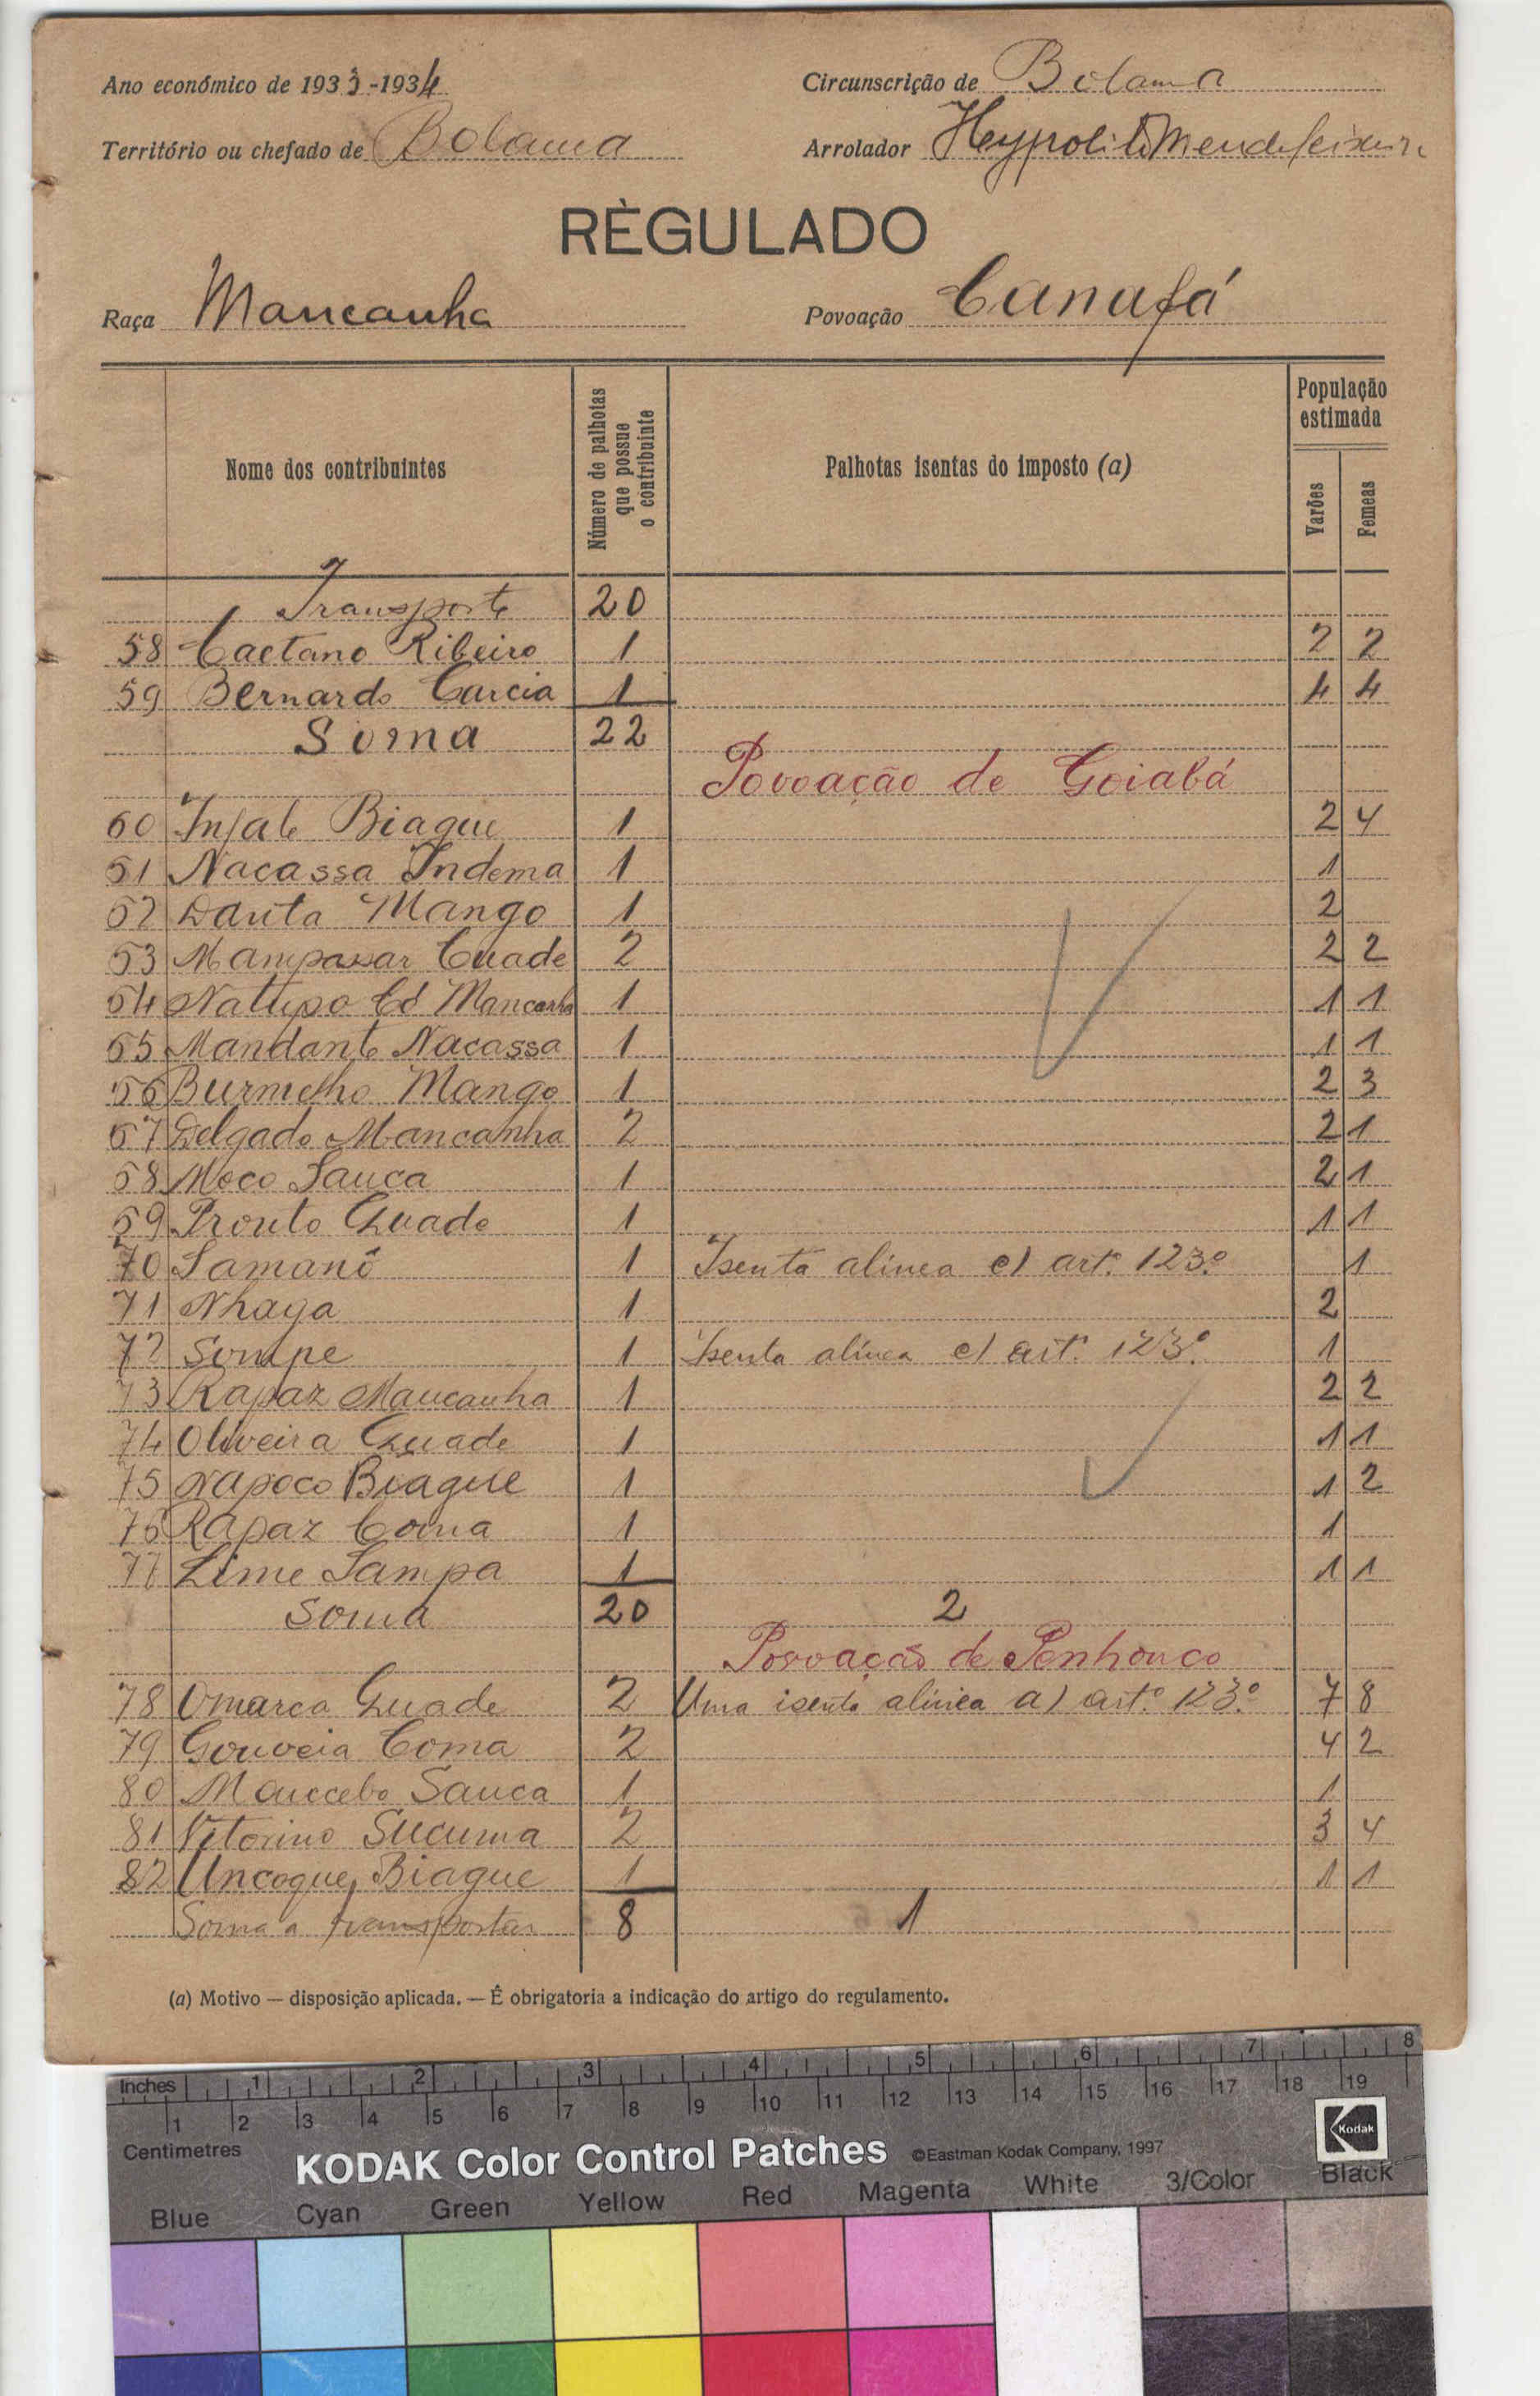 Ano económico de 1933-1934
Circunscrição de Bolama
Território ou chefado de Bolama
Arrolador Heypolito Mendes
RÈGULADO
Raça Mancanha
Povoação Canafá
Nome dos contribuintes
Número de palhotas que possue o contribuinte
Palhotas isentas do imposto (a)
População estimada
Varões
Femeas
Transporte 20
58 Caetano Ribeiro 1 2 2
59 Bernardo Garcia 1 4 4
Soma 22
Povoação de Goiabá
60 Infale Biague 1 2 4
61 Nacassa Indema 1 1
62 Dauta Mango 1 2
63 Mampassar Cuade 2 2 2
64 Natupo Có Mancanha 1 1 1
65 Mandante Nacassa 1 1 1
66 Burmelho Mango 1 2 3
67 Delgado Mancanha 2 2 1
68 Moco Sauca 1 2 1
69 Pronto Quade 1 1 1
70 Samanô 1 Isenta alinea c) artº 123º 1
71 Nhaga 1 2
72 Sompe 1 Isenta alinea c) artº 123º 1
73 Rapaz Mancanha 1 2 2
74 Oliveira Quade 1 1 1
75 Napoco Biague 1 1 2
76 Rapaz Coma 1 1
77 Lime Sampa 1 1 1
Soma 20 2
Povoação de Penhouco
78 Omarca Quade 2 Uma isenta alinea a) artº 123º 7 8
79 Gouveia Coma 2 4 2
80 Mancebo Sauca 1 1
81 Vitorino Sucuma 2 3 4
82 Uncogue Biague 1 1 1
Soma a transportar 8 1
(a) Motivo — disposição aplicada. — É obrigatoria a indicação do artigo do regulamento.
Inches 1 2 3 4 5 6 7 8
1 2 3 4 5 6 7 8 9 10 11 12 13 14 15 16 17 18 19
Centimetres
KODAK Color Control Patches ©Eastman Kodak Company, 1997 Kodak
Blue Cyan Green Yellow Red Magenta White 3/Color Black